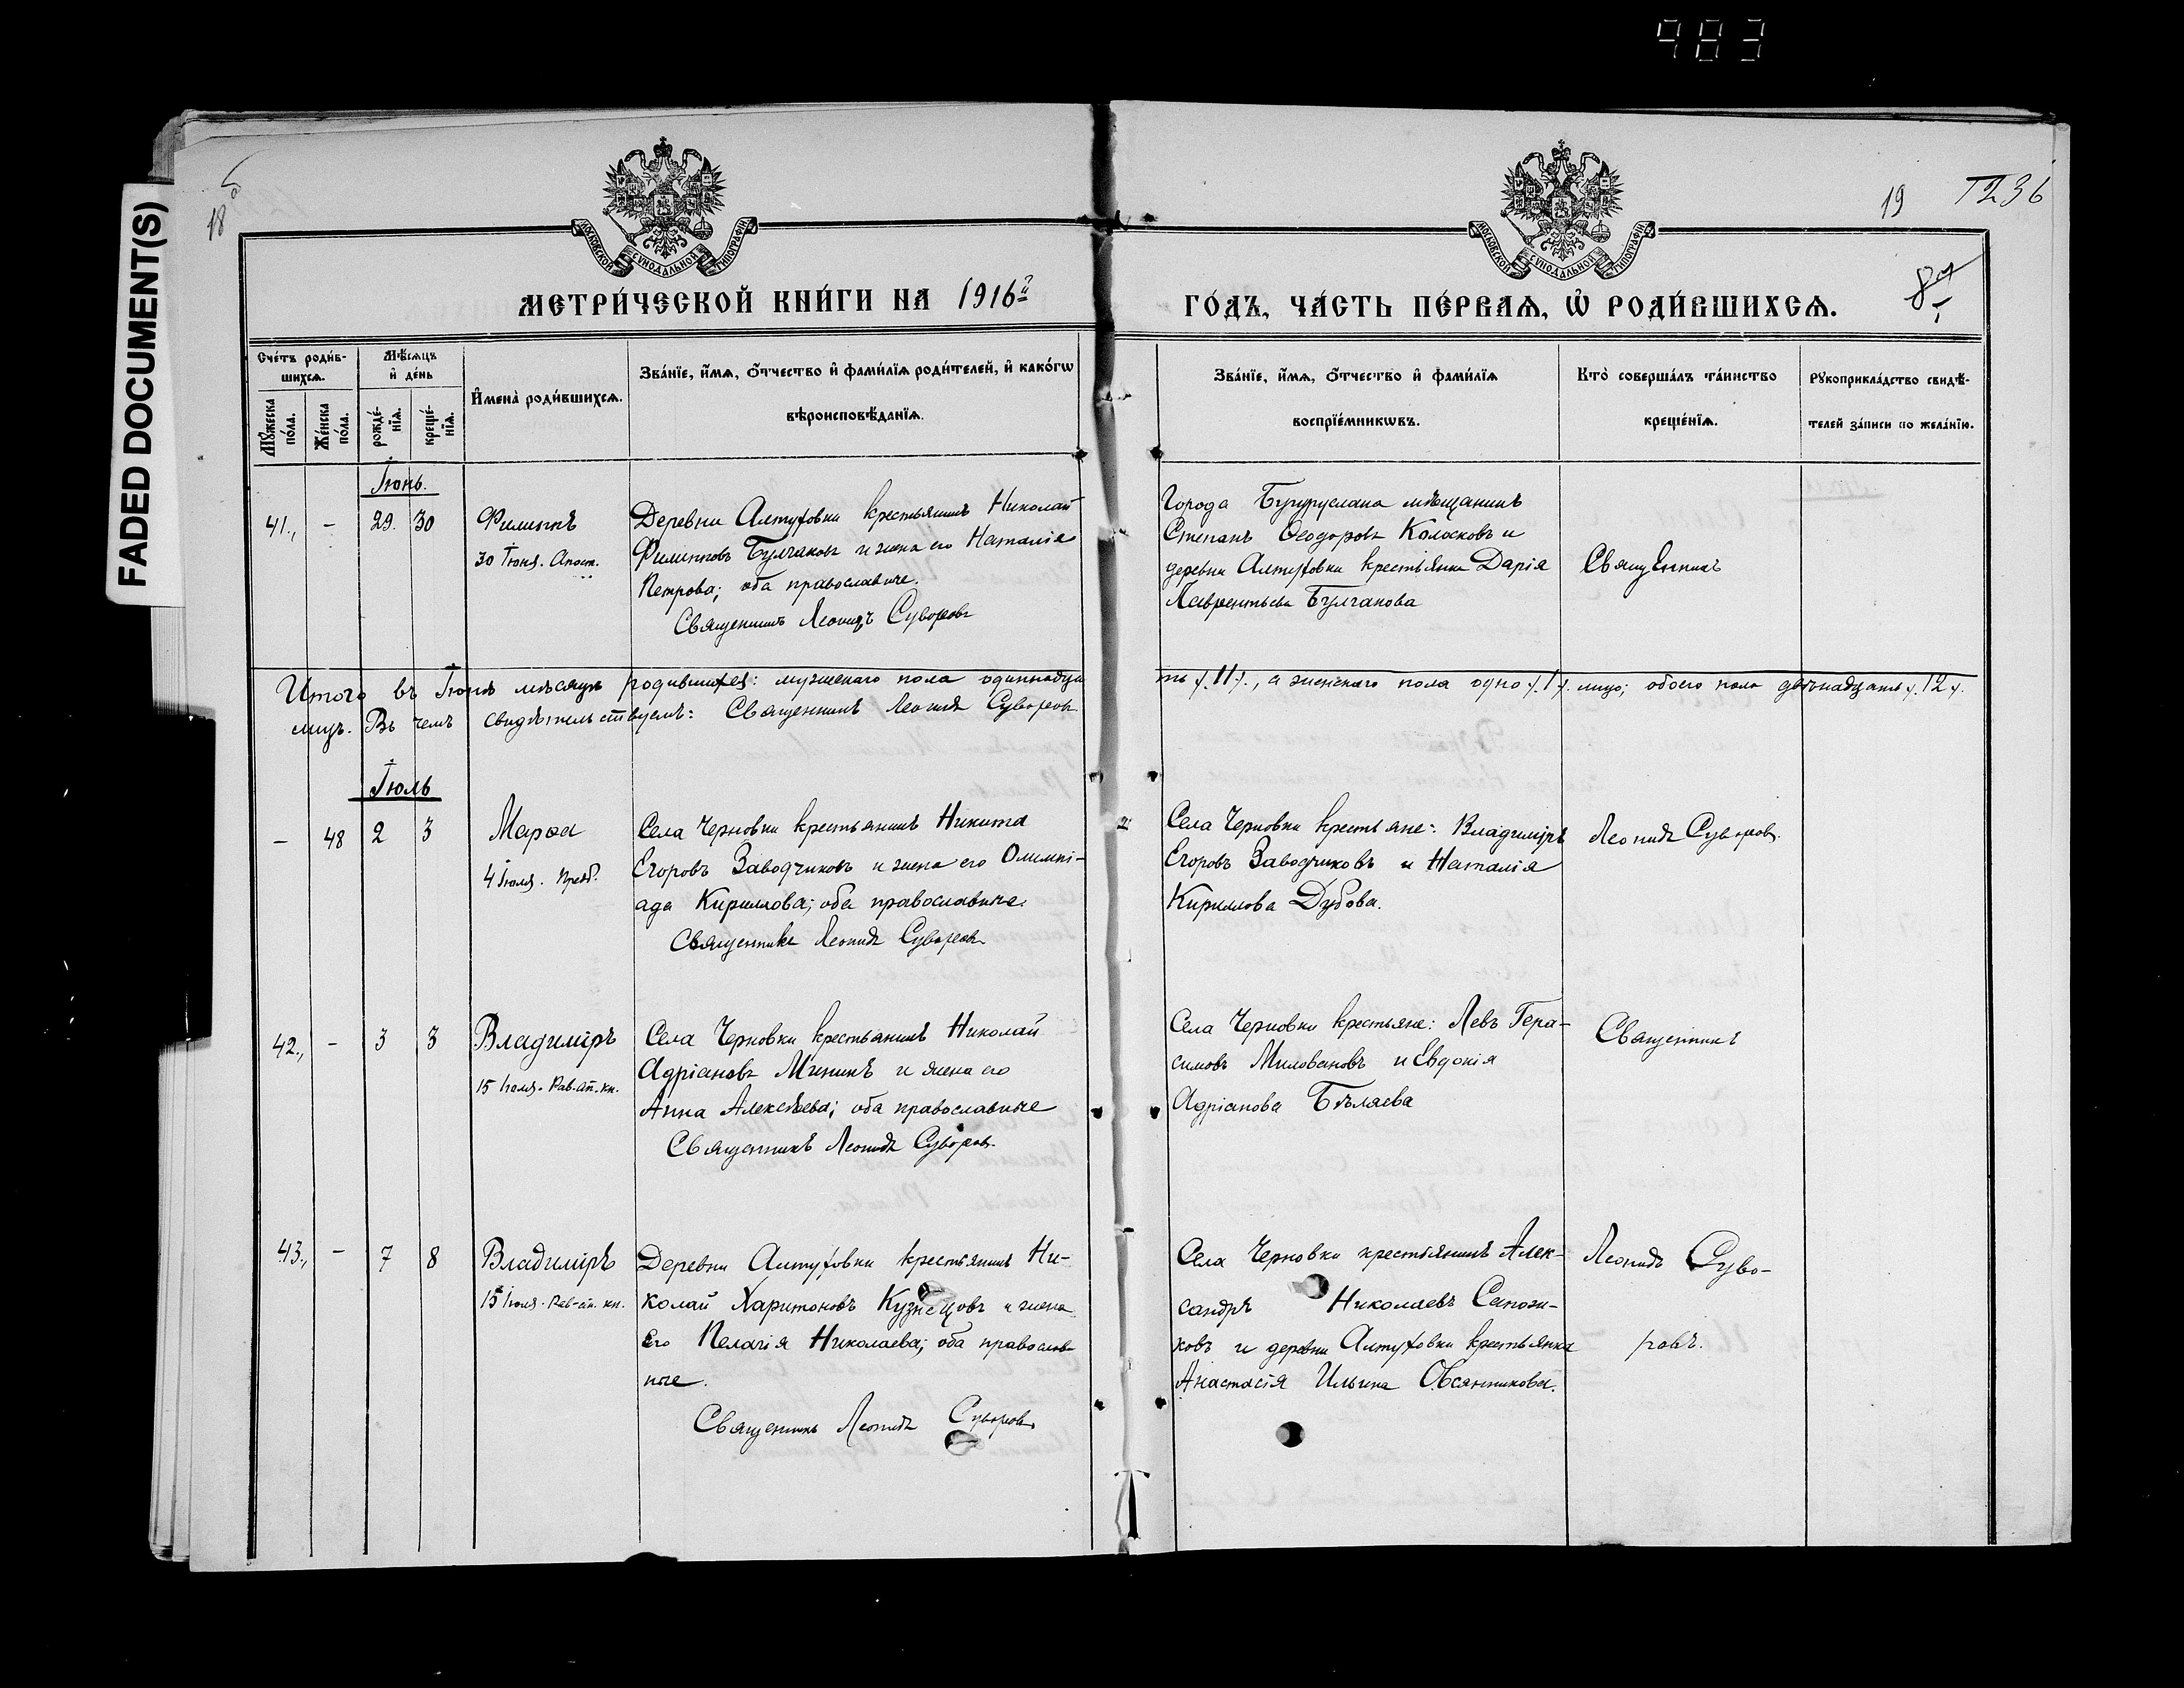 983
FADED DOCUMENT(S)
18
19
1236
87
МОСКОВСКОЙ СѴНОДАЛЬНОЙ ТИПОГРАФІИ
МОСКОВСКОЙ СѴНОДАЛЬНОЙ ТИПОГРАФІИ
МЕТРИ́ЧЕСКОЙ КНИ́ГИ НА 1916й
ГО́ДЪ, ЧА́СТЬ ПЕ́РВАѦ, Ѡ҆ РОДИ́ВШИХСѦ.
Сче́тъ роди́в-
шихсѧ.
Мѣ́сѧцъ
и҆ де́нь
Мꙋ́жеска
по́ла.
Же́нска
по́ла.
рожде́-
нїѧ.
креще́-
нїѧ.
И҆мена̀ роди́вшихсѧ.
Зва́нїе, и҆́мѧ, ѻ҆́тчество и҆ фами́лїѧ роди́телей, и҆ како́гѡ
вѣроисповѣ́данїѧ.
Зва́нїе, и҆́мѧ, ѻ҆́тчество и҆ фами́лїѧ
воспрїе́мникѡвъ.
Кто̀ соверша́лъ та́инство
креще́нїѧ.
Рꙋкоприкла́дство свидѣ́-
телей за́писи по жела́нїю.
Іюнь.
41., - 29. 30 Филиппъ
30 Іюня. Апост.
Деревни Алтуховки крестьянинъ Николай
Филипповъ Булгаковъ и жена его Наталія
Петрова; оба православные.
Священникъ Леонидъ Суворовъ
Города Бугуруслана мѣщанинъ
Степанъ Ѳеодоровъ Колосковъ и
деревни Алтуховки крестьянка Дарія
Лаврентьева Булгакова
Священникъ
Итого въ Іюнѣ мѣсяцѣ родившихся: мужескаго пола одиннадца
ть /.11/., а женскаго пола одно /.1/. лицо; обоего пола двѣнадцать /.12/.
лицъ. Въ чемъ свидѣтельствуемъ: Священникъ Леонидъ Суворовъ
Іюль
- 48 2 3 Марѳа
4 Іюля. Преб.
Села Черновки крестьянинъ Никита
Егоровъ Заводчиковъ и жена его Олимпі-
ада Кириллова; оба православные.
Священникъ Леонидъ Суворовъ
Села Черновки крестьяне: Владиміръ
Егоровъ Заводчиковъ и Наталія
Кириллова Дубова.
Леонидъ Суворовъ.
42., - 3 3 Владиміръ
15 Іюля. Рав. ап. кн.
Села Черновки крестьянинъ Николай
Адріановъ Мининъ и жена его
Анна Алексѣева; оба православные
Священникъ Леонидъ Суворовъ.
Села Черновки крестьяне: Левъ Гера-
симовъ Миловановъ и Евдокія
Адріанова Бѣляева
Священникъ
43., - 7 8 Владиміръ
15 Іюля. Рав-ап. кн.
Деревни Алтуховки крестьянинъ Ни-
колай Харитоновъ Кузнецовъ и жена
его Пелагія Николаева; оба православ-
ные.
Священникъ Леонидъ Суворовъ
Села Черновки крестьянинъ Алек-
сандръ Николаевъ Сапожн-
ковъ и деревни Алтуховки крестьянка
Анастасія Ильина Овсянникова.
Леонидъ Суво-
ровъ.